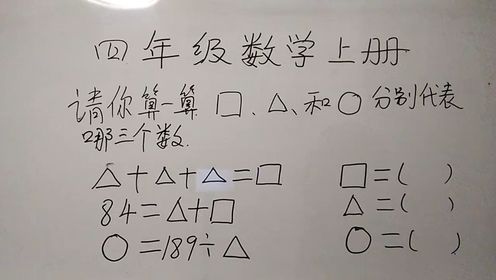 四年级数学上册
请你算一算 □、△、和 ○ 分别代表
哪三个数.
△+△+△=□ □=( )
84=△+□ △=( )
○=189÷△ ○=( )